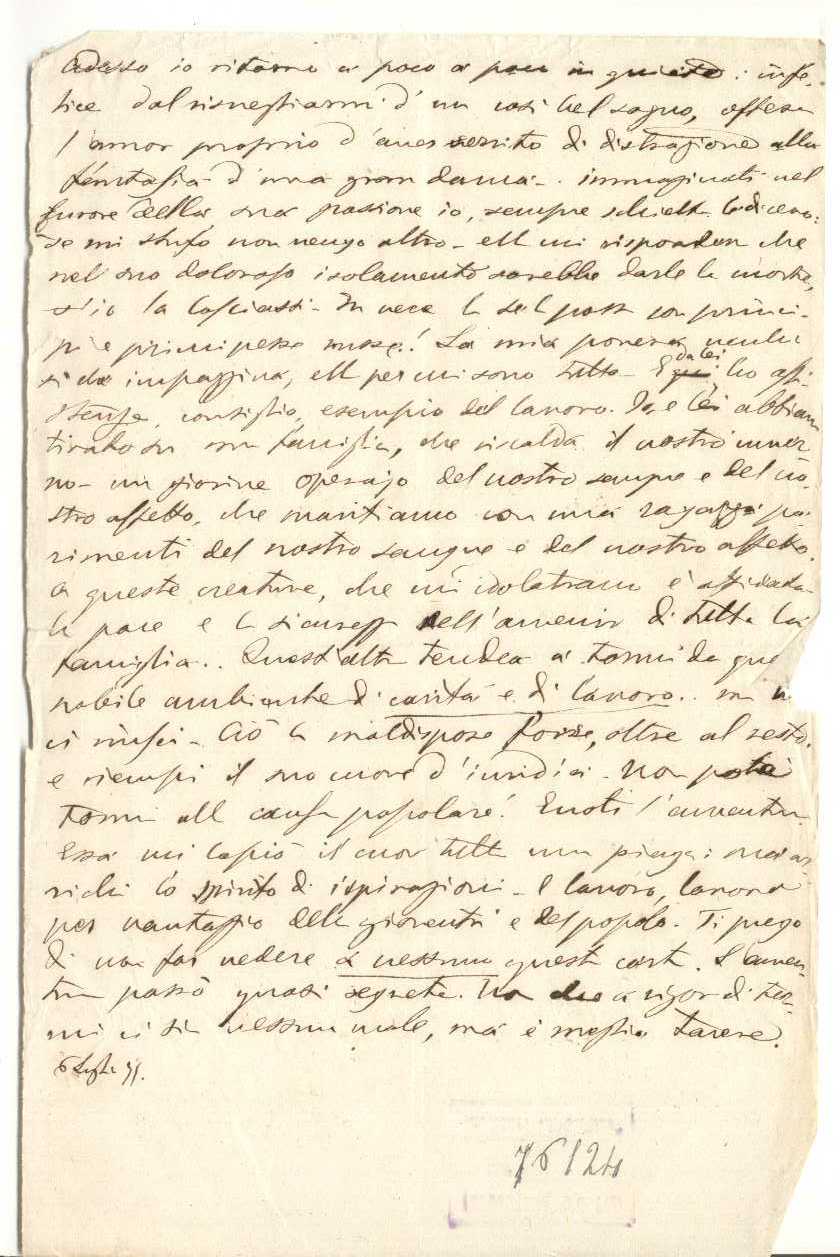 Adesso io ritorno a poco a poco in quiete: infe-
lice dal risvegliarmi d'un così bel sogno, offeso
l'amor proprio d'aver servito di distrazione alla
fantasia d'una gran dama. immaginati nel
furore della sua passione io, sempre schietto le dicevo:
se mi stufo non vengo altro - ell mi rispondeva che
nel suo doloroso isolamento sarebbe darle la morte,
s'io la lasciassi - In vece la se la passa con princi-
pi e principesse russe! La mia povera
si dà impazzina, ell per mi sono tutto - E da lei ho assi-
stenza, consiglio, esempio del lavoro. Io e lei abbiam
tirato su una famiglia, che riscalda il nostro inver-
no - un giovine operajo del nostro sangue e del no-
stro affetto, che maritiamo con una ragazza pa-
rimenti del nostro sangue e del nostro affetto.
a queste creature, che mi idolatrano è affidata
la pace e la sicurezza dell'avvenir di tutta la
famiglia.. Quest'altra tendea a tormi da que
nobile ambiente di carità e di lavoro.. ma n
ci riuscì - Ciò la maldispose forse, oltre al resto,
e riempì il suo cuore d'invidia - Non potea
tormi all causa popolare! Eccoti l'avventura
Essa mi lasciò il cuor tutto una piaga: ma ar-
richì lo spirito di ispirazioni - E lavoro, lavoro
per vantaggio della gioventù e del popolo. Ti prego
di non far vedere a nessuno questa carta. L'avven-
tura passò quasi segreta. Non che a rigor di ter-
mini ci sia nessun male, ma è meglio tacere.
6 Luglio 91.
76124